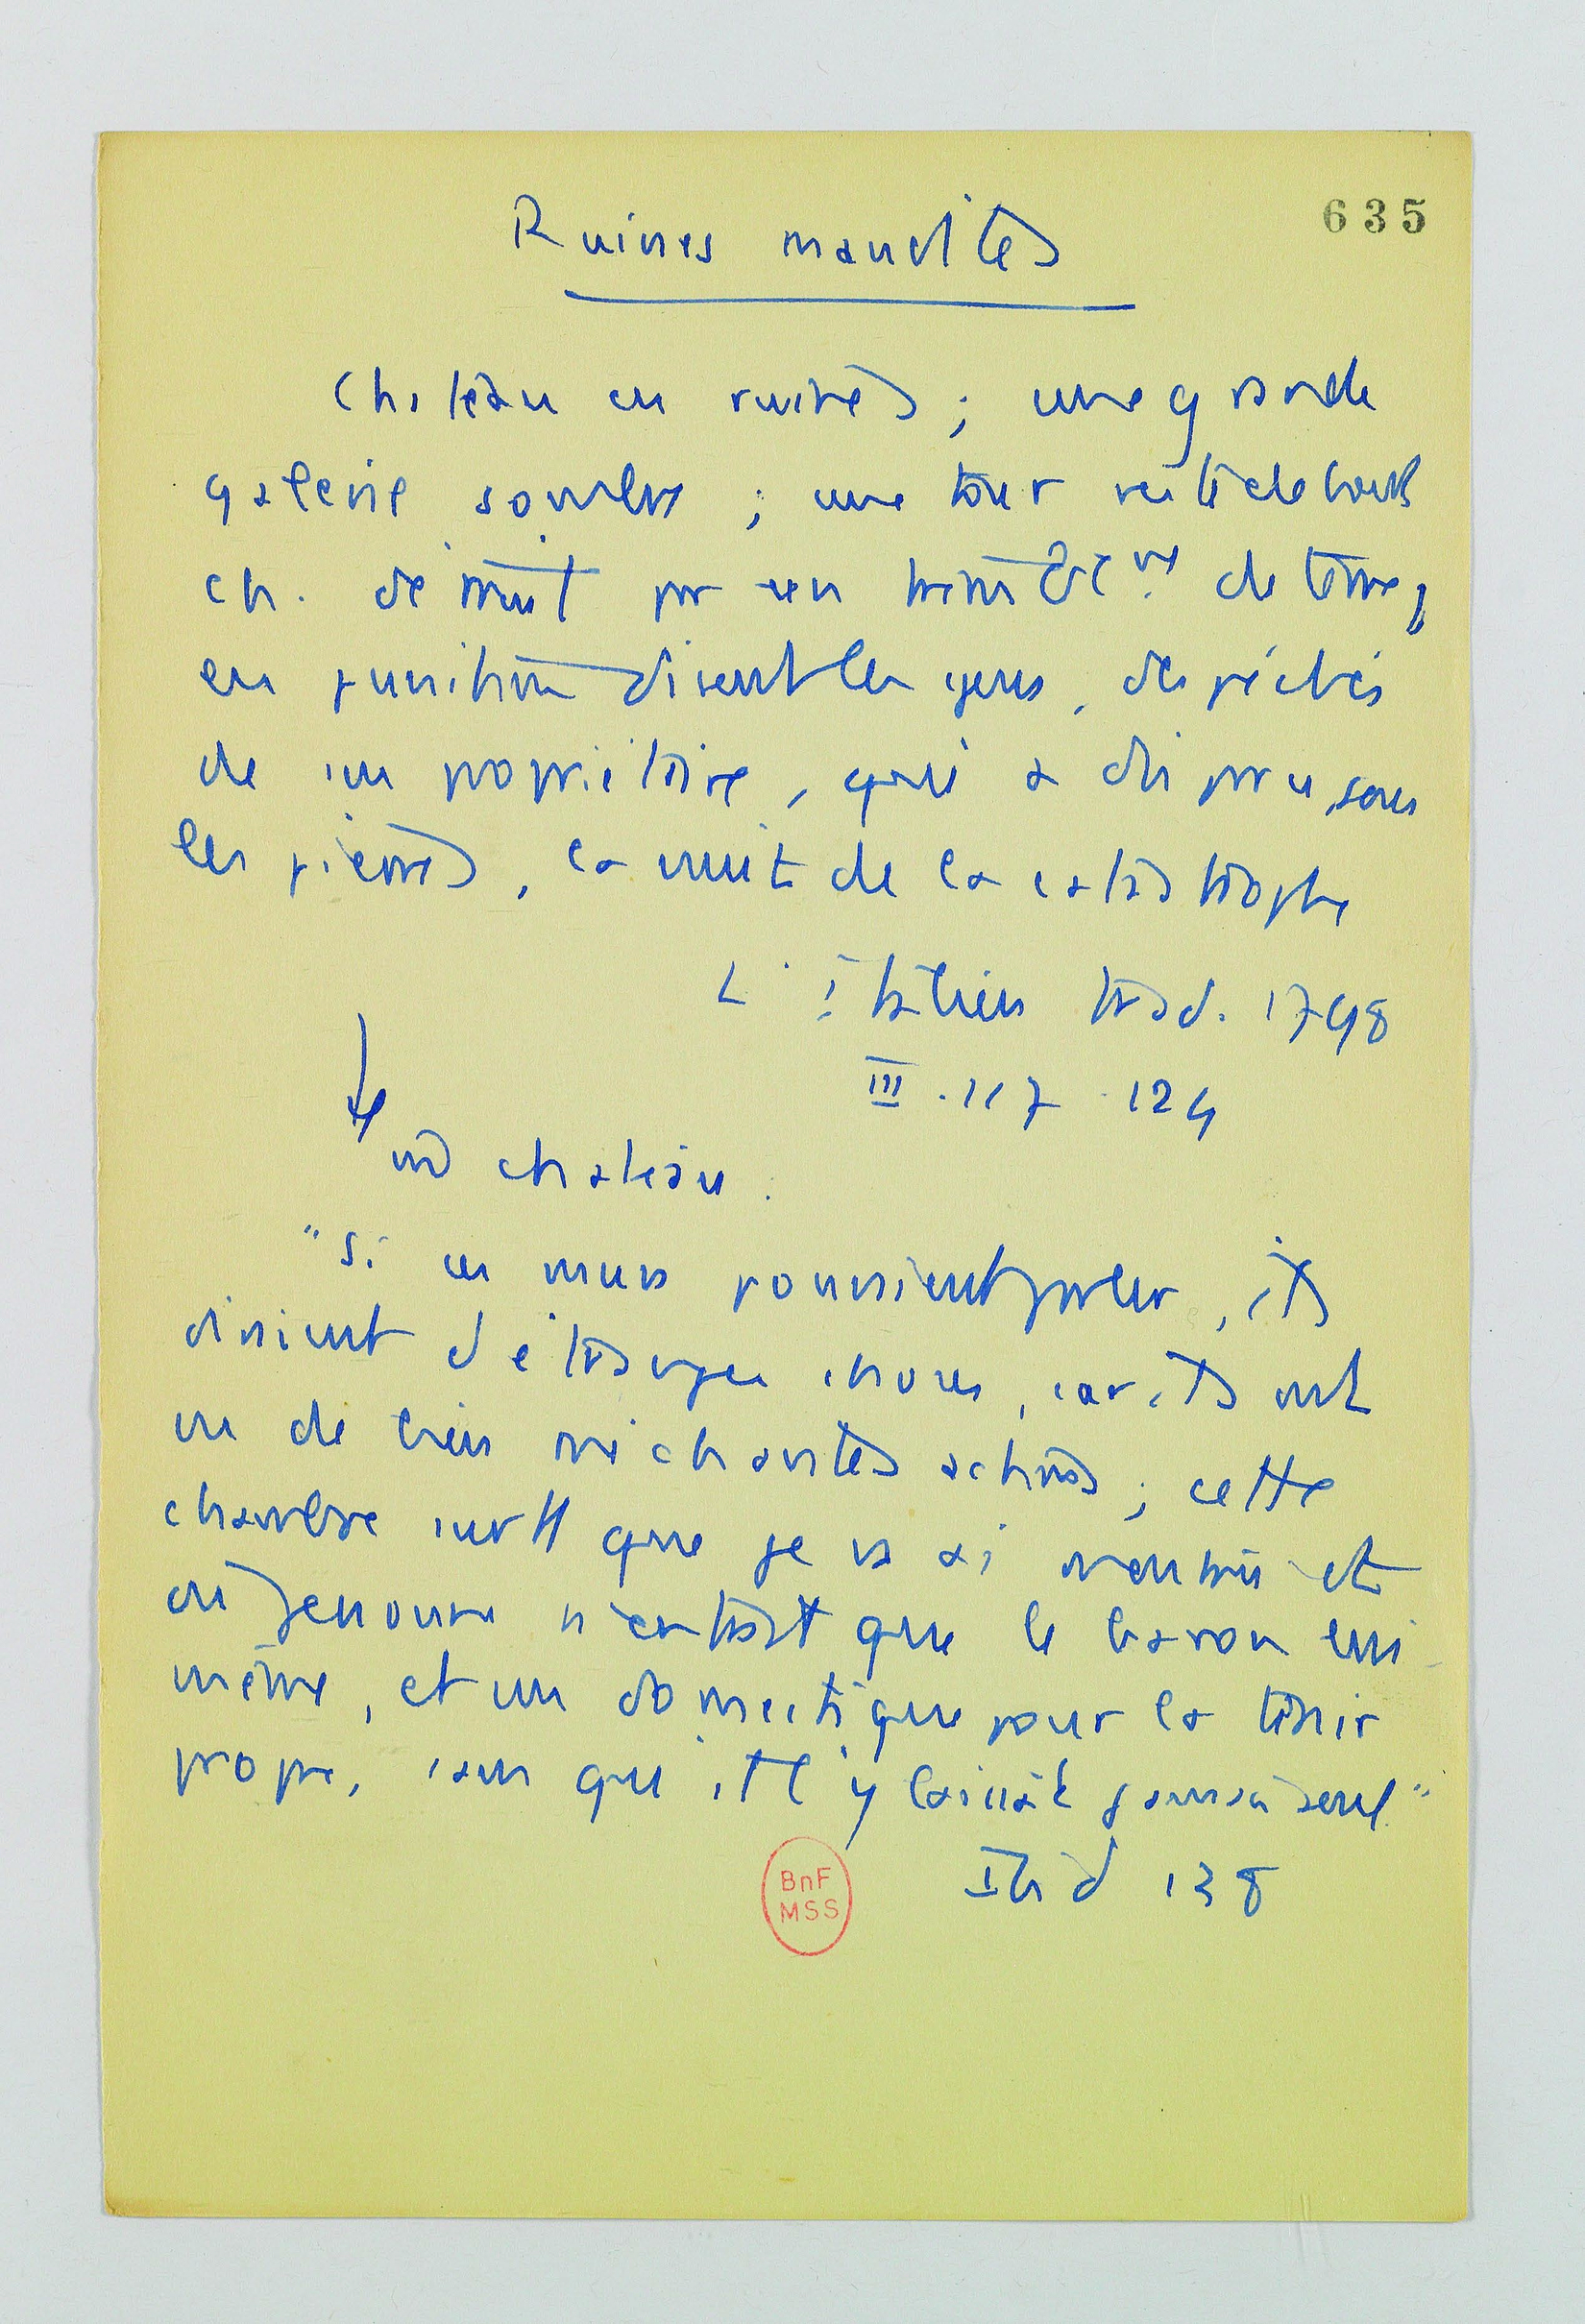 635
Ruines maudites
Château en ruines ; une grande
galerie sombre ; une tour reste debout
ch. détruit par un de terre,
en punition disent les gens, des péchés
de son propriétaire, qui a disparu, sous
les pierres, la nuit de la catastrophe
L'Italien trad. 1798
III . 117 - 124
chateau.
"Si ces murs pouvaient parler, ils
diraient d'étranges choses, car ils ont
vu de bien méchantes actions ; cette
chambre surtt que je vs ai montrée et
où personne n'entrait que le baron lui-
même, et un domestique pour la tenir
propre, sans qu'il l'y laissât jamais seul"
Ibid 138
BnF
MSS